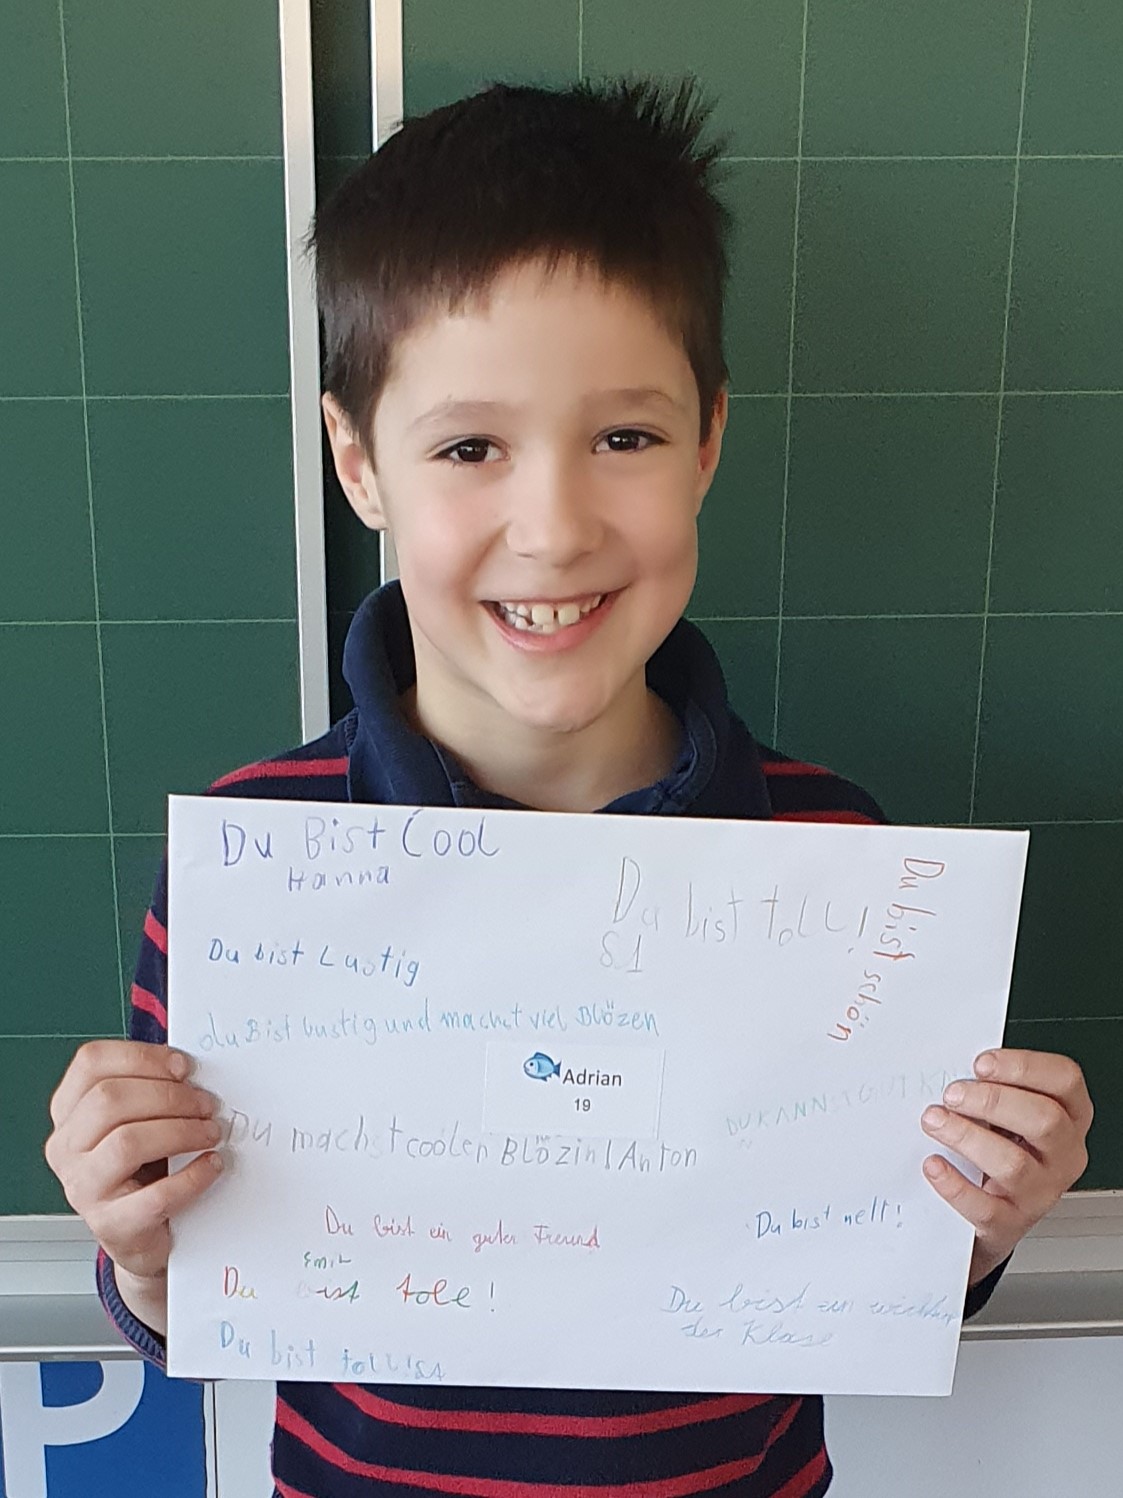 Du Bist Cool
Hanna
Du bist toll!
S1
Du bist schön
Du bist Lustig
du Bist lustig und machst viel Blözen
Adrian
19
Du machst coolen Blözin! Anton
DU KANNST GUT
Du bist ein guter Freund
Emil
Du bist nett!
Du ist tole!
Du bist ein
der Klase
Du bist toll!S1
P